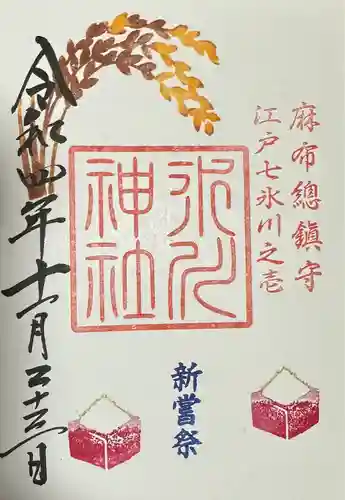 麻布總鎮守
江戸七氷川之壱
氷川
神社
新嘗祭
令和四年十一月二十三日